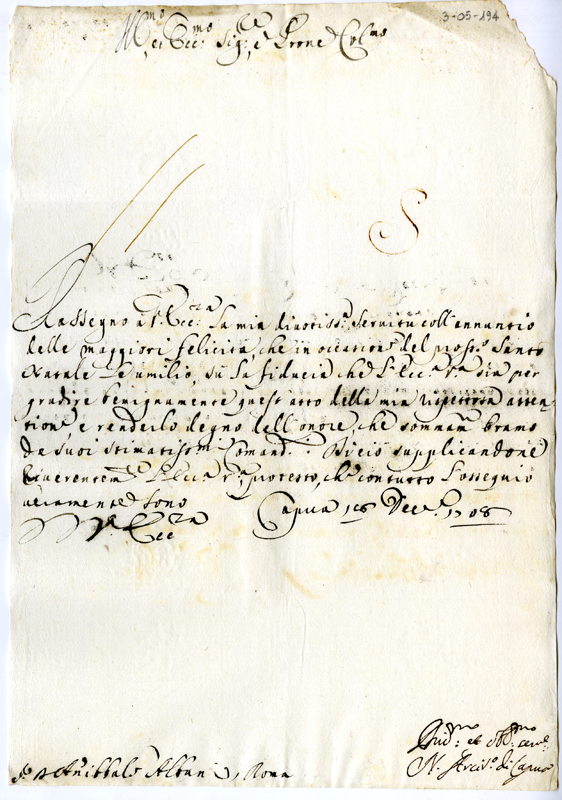 3-05-194
Ill.mo et Ecc.mo Sig.re e Prone Col.mo
S
Rassegno a V. Ecc.za la mia divotiss.a servitù coll'annuntio
delle maggiori felicità, che in occasione del pross.o Santo
Natale Le umilio, su la fiducia che l'Ecc.a V.a sia per
gradire benignamente quest'atto della mia rispettosa atten-
tione e renderlo degno dell'onore, che sommam.e bramo
da suoi stimatissimi Comandi. Di ciò supplicandone
riverentem.e l'Ecc.a V.a protesto, che con tutto l'ossequio
veramente sono
V. Ecc.za Capua 18 Dec.e 1708
et obl.mo
N. Arciv.o di Capua
Annibale Albani, Roma